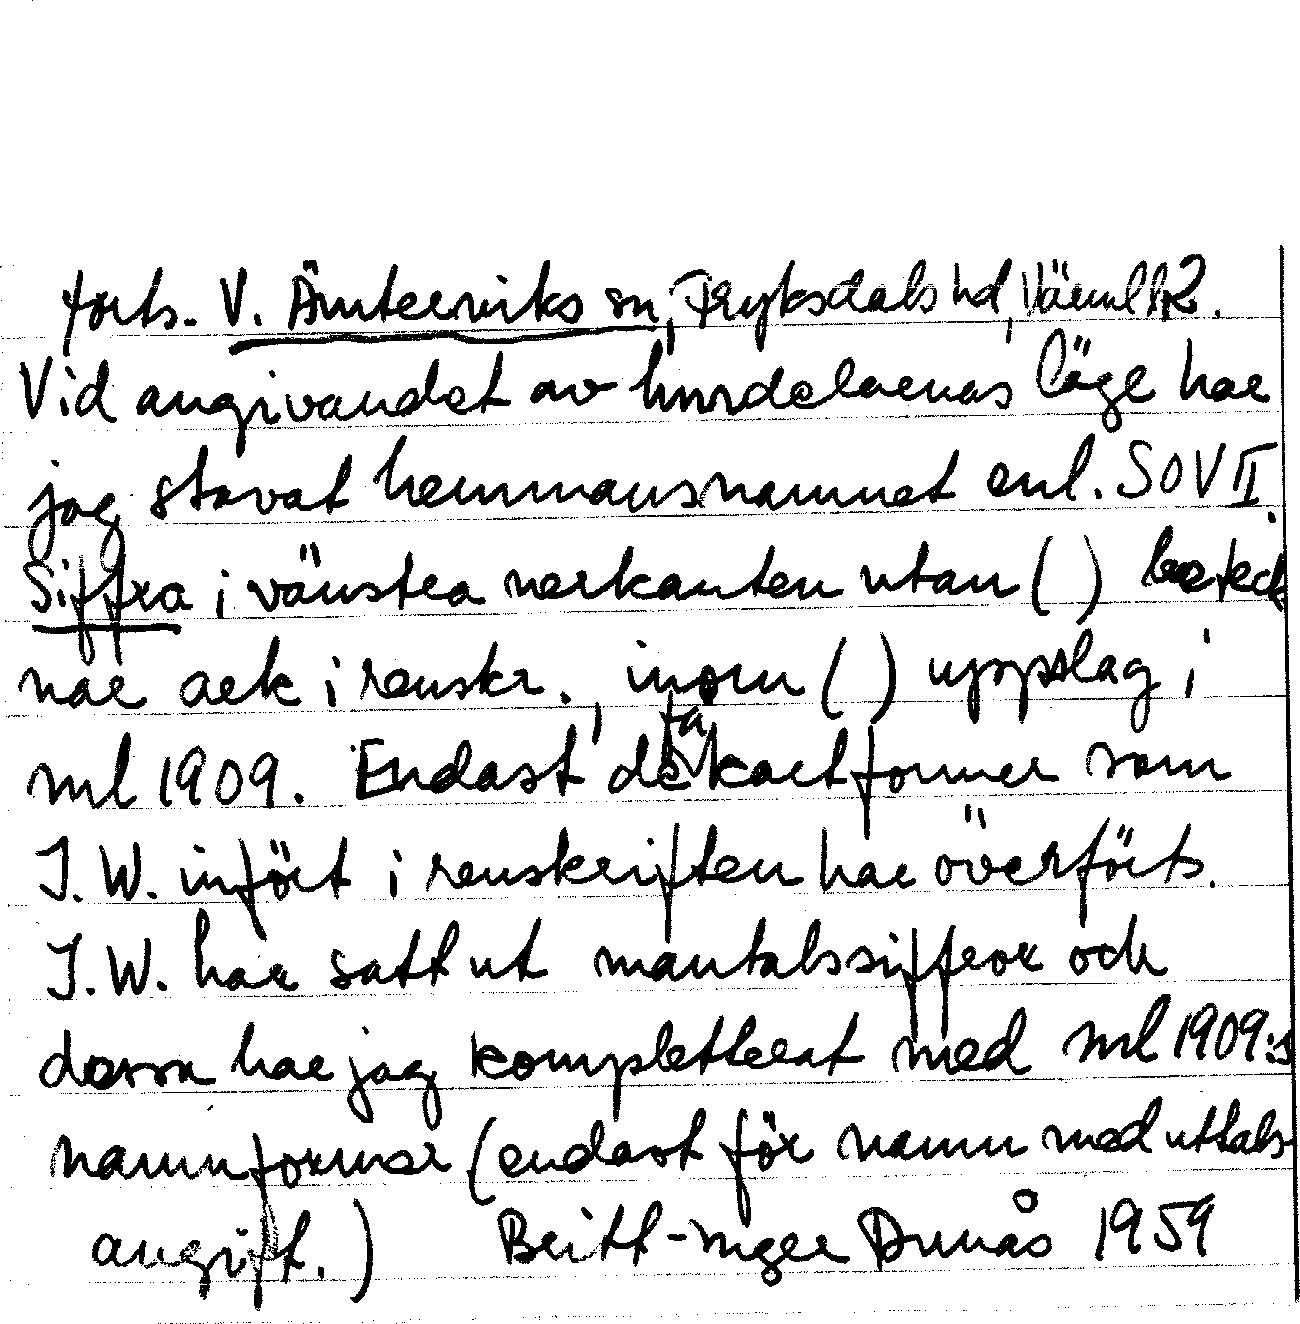 forts. V. Ämterviks sn, Fryksdals hd, Värml.
Vid angivandet av hmndelarnas läge har
jag stavat hemmansnamnet enl. SOV II
Siffra i vänstra nerkanten utan ( ) beteck
nar ark i renskr., inom ( ) uppslag i
ml 1909. Endast de få kartformer som
J.W. infört i renskriften har överförts.
J.W. har satt ut mantalssiffror och
dessa har jag kompletterat med ml 1909:s
namnformer (endast för namn med uttals
angift.) Britt-Inger Dunås 1959